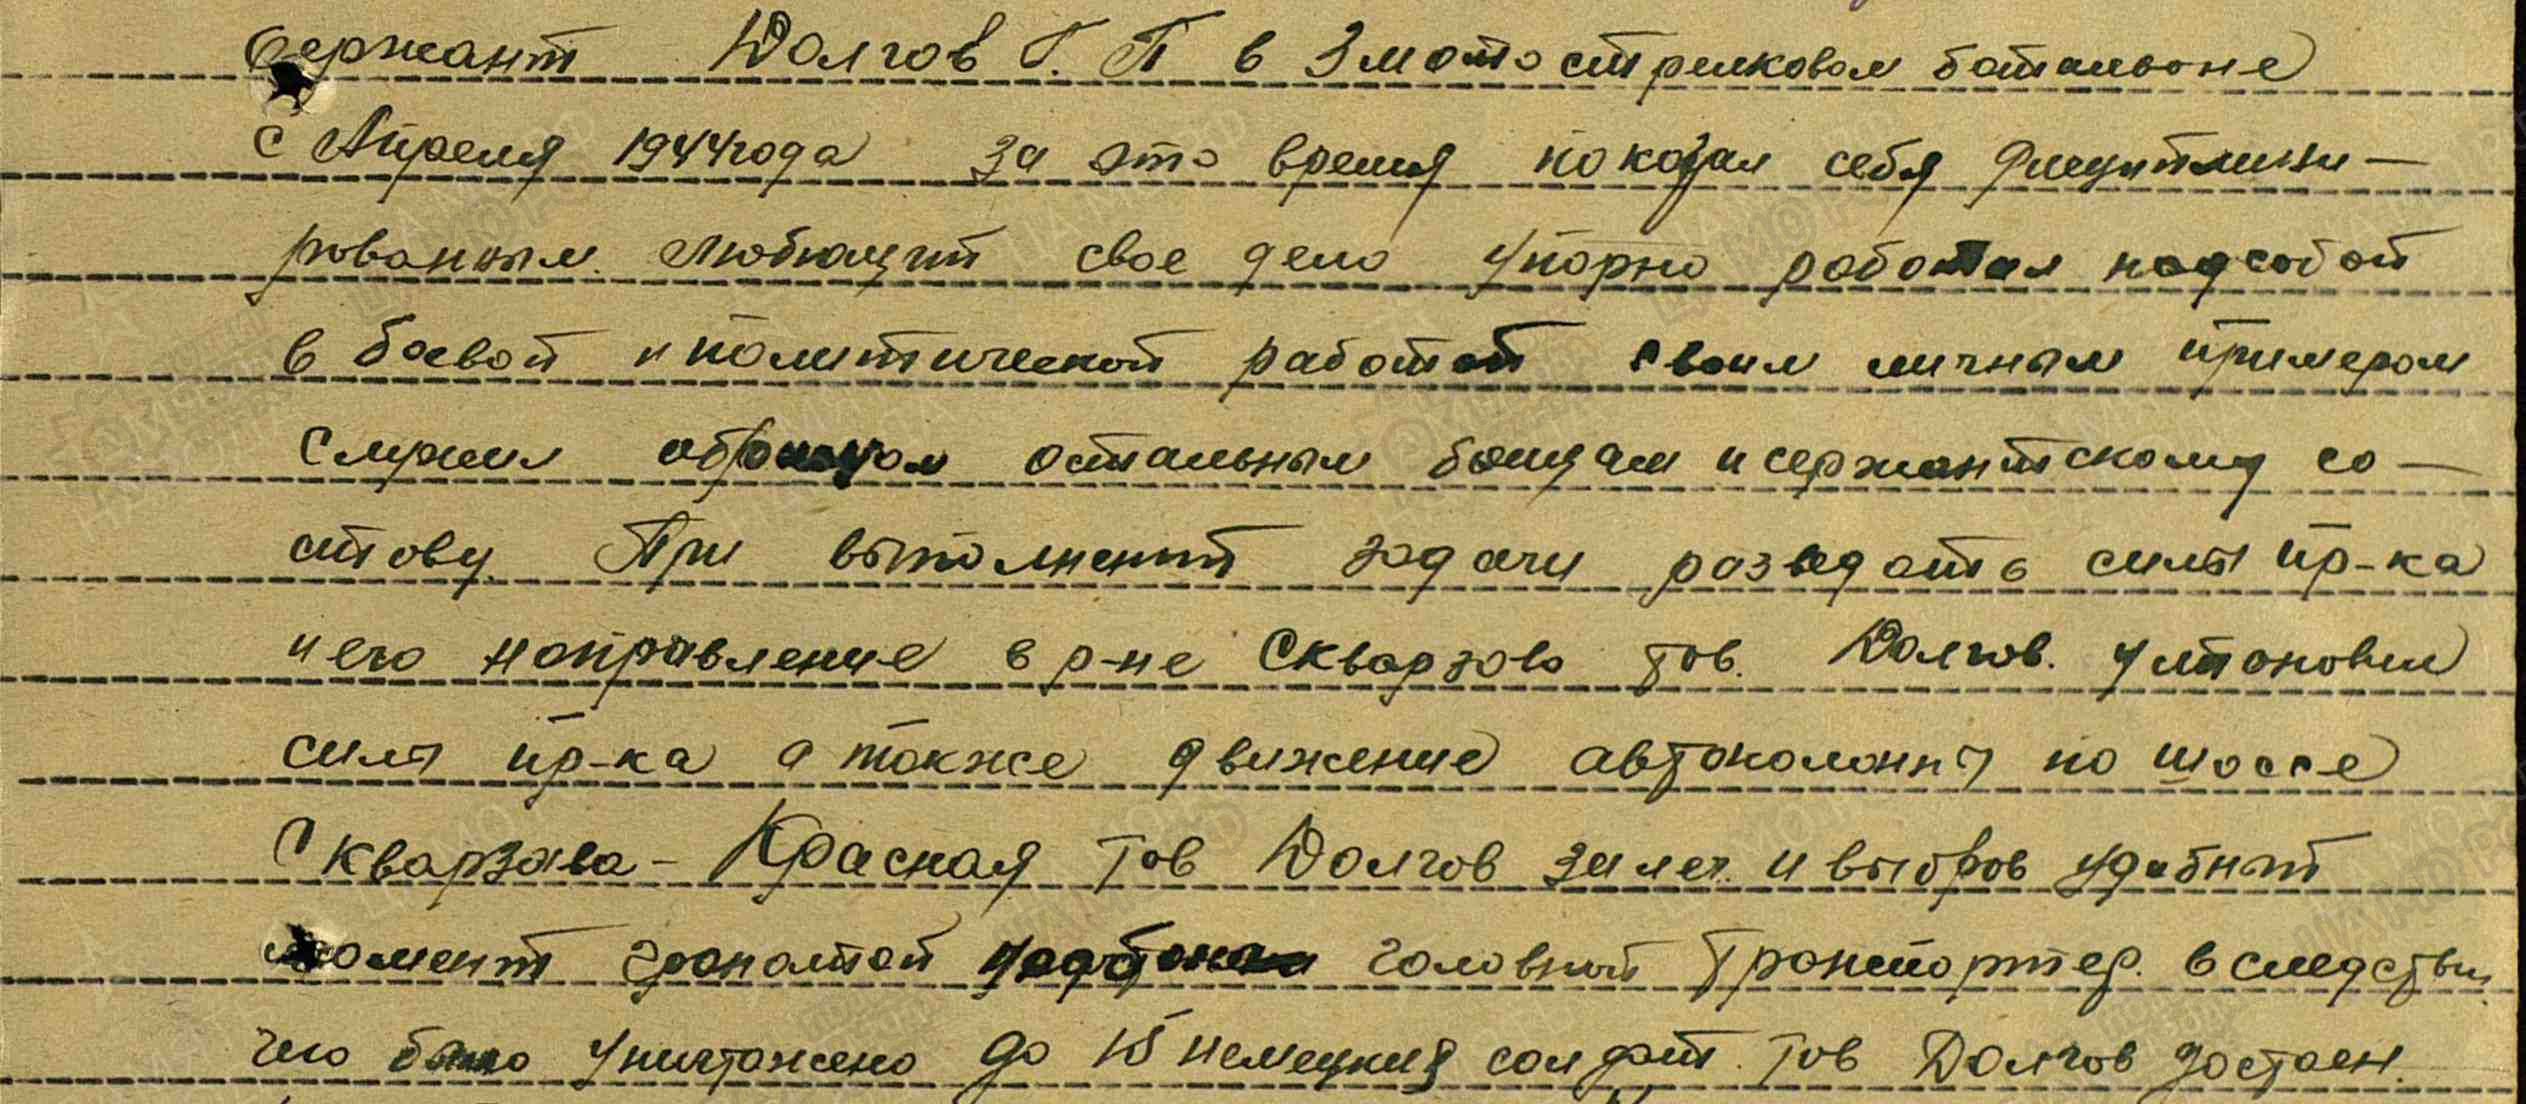 Сержант Долгов Г. П в 3 мото стрелковом батальоне
с Апреля 1944 года за это время показал себя дисциплини-
рованным. Любящий свое дело упорно работал над собой
в боевой и политической работой своим личным примером
служил образцом остальным бойцам и сержантскому со-
ставу. При выполнений задачи разведать силы пр-ка
и его направление в р-не Скварзова тов. Долгов. установил
силы пр-ка а также движение автоколонны по шоссе
Скварзава - Красная Тов Долгов залег. и выбров удобный
момент гранатой головной транспортер. в следствии
чего было уничтожено до 15 немецких солдат. Тов Долгов достоен.